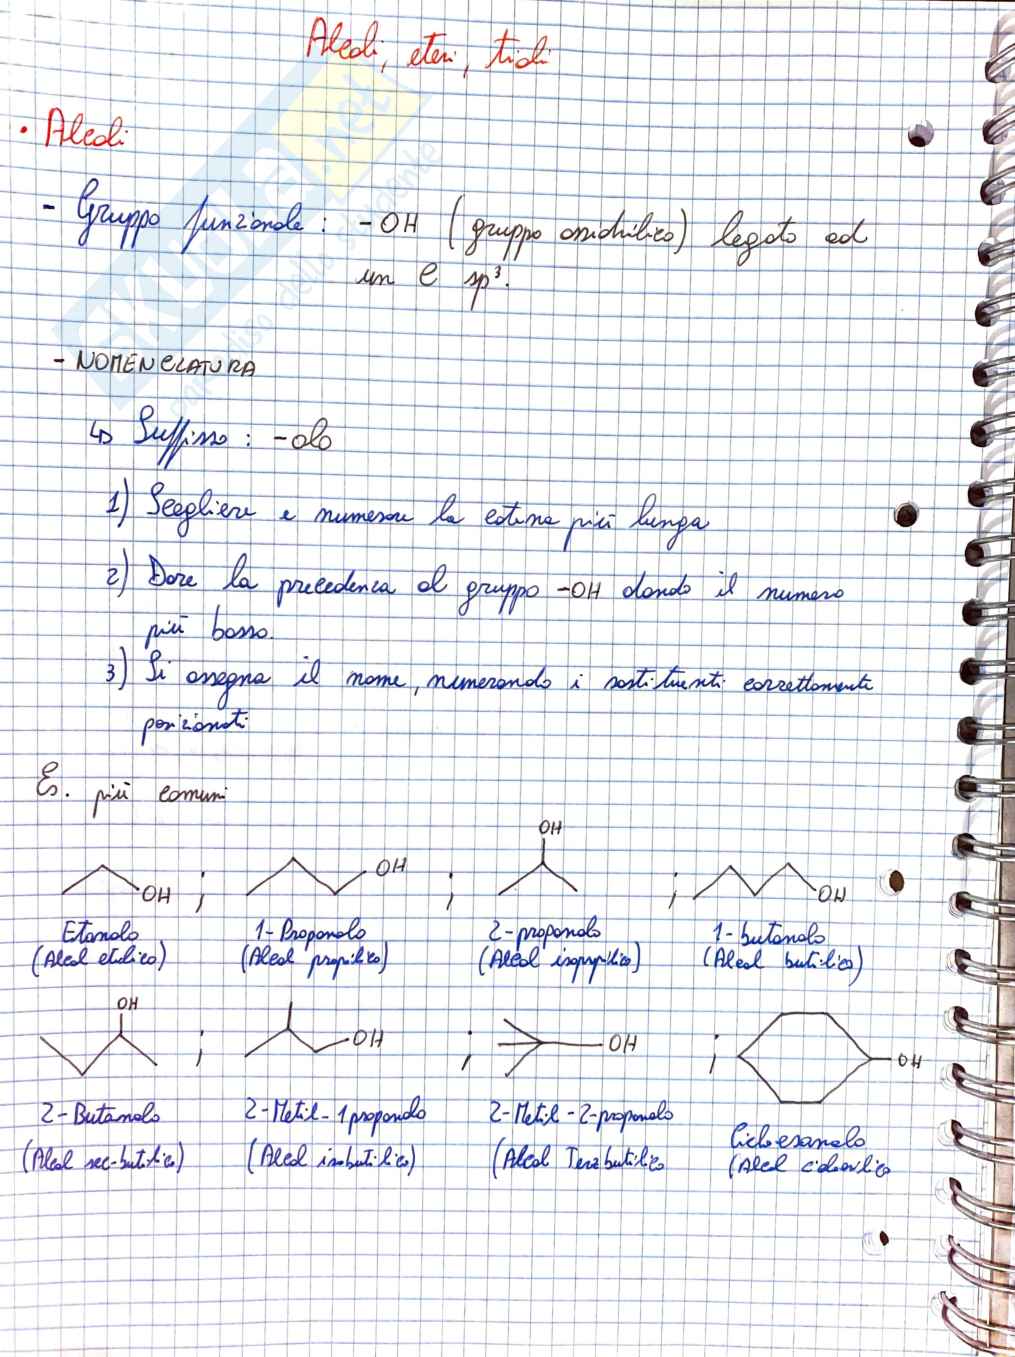 Alcoli, eteri, tioli
• Alcoli
- Gruppo funzionale: -OH (gruppo ossidrilico) legato ad
un C sp³.
- NOMENCLATURA
↳ Suffisso: -olo
1) Scegliere e numerare la catena più lunga
2) Dare la precedenza al gruppo -OH dando il numero
più basso.
3) Si assegna il nome, numerando i sostituenti correttamente
posizionati
Es. più comuni
OH
OH ; OH ; ; OH
Etanolo 1-Propanolo 2-propanolo 1-butanolo
(Alcol etilico) (Alcol propilico) (Alcol isopropilico) (Alcol butilico)
OH
; OH ; OH ; OH
2-Butanolo 2-Metil-1propanolo 2-Metil-2-propanolo Cicloesanolo
(Alcol sec-butilico) (Alcol isobutilico) (Alcol Terzbutilico (Alcol
SKUOLA.net
paradiso dello studente